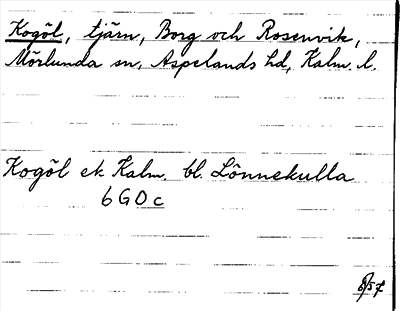 Kogöl, tjärn, Borg och Rosenvik,
Mörlunda sn, Aspelands hd, Kalm. l.
Kogöl ek Kalm. bl. Lönnekulla
6G0c